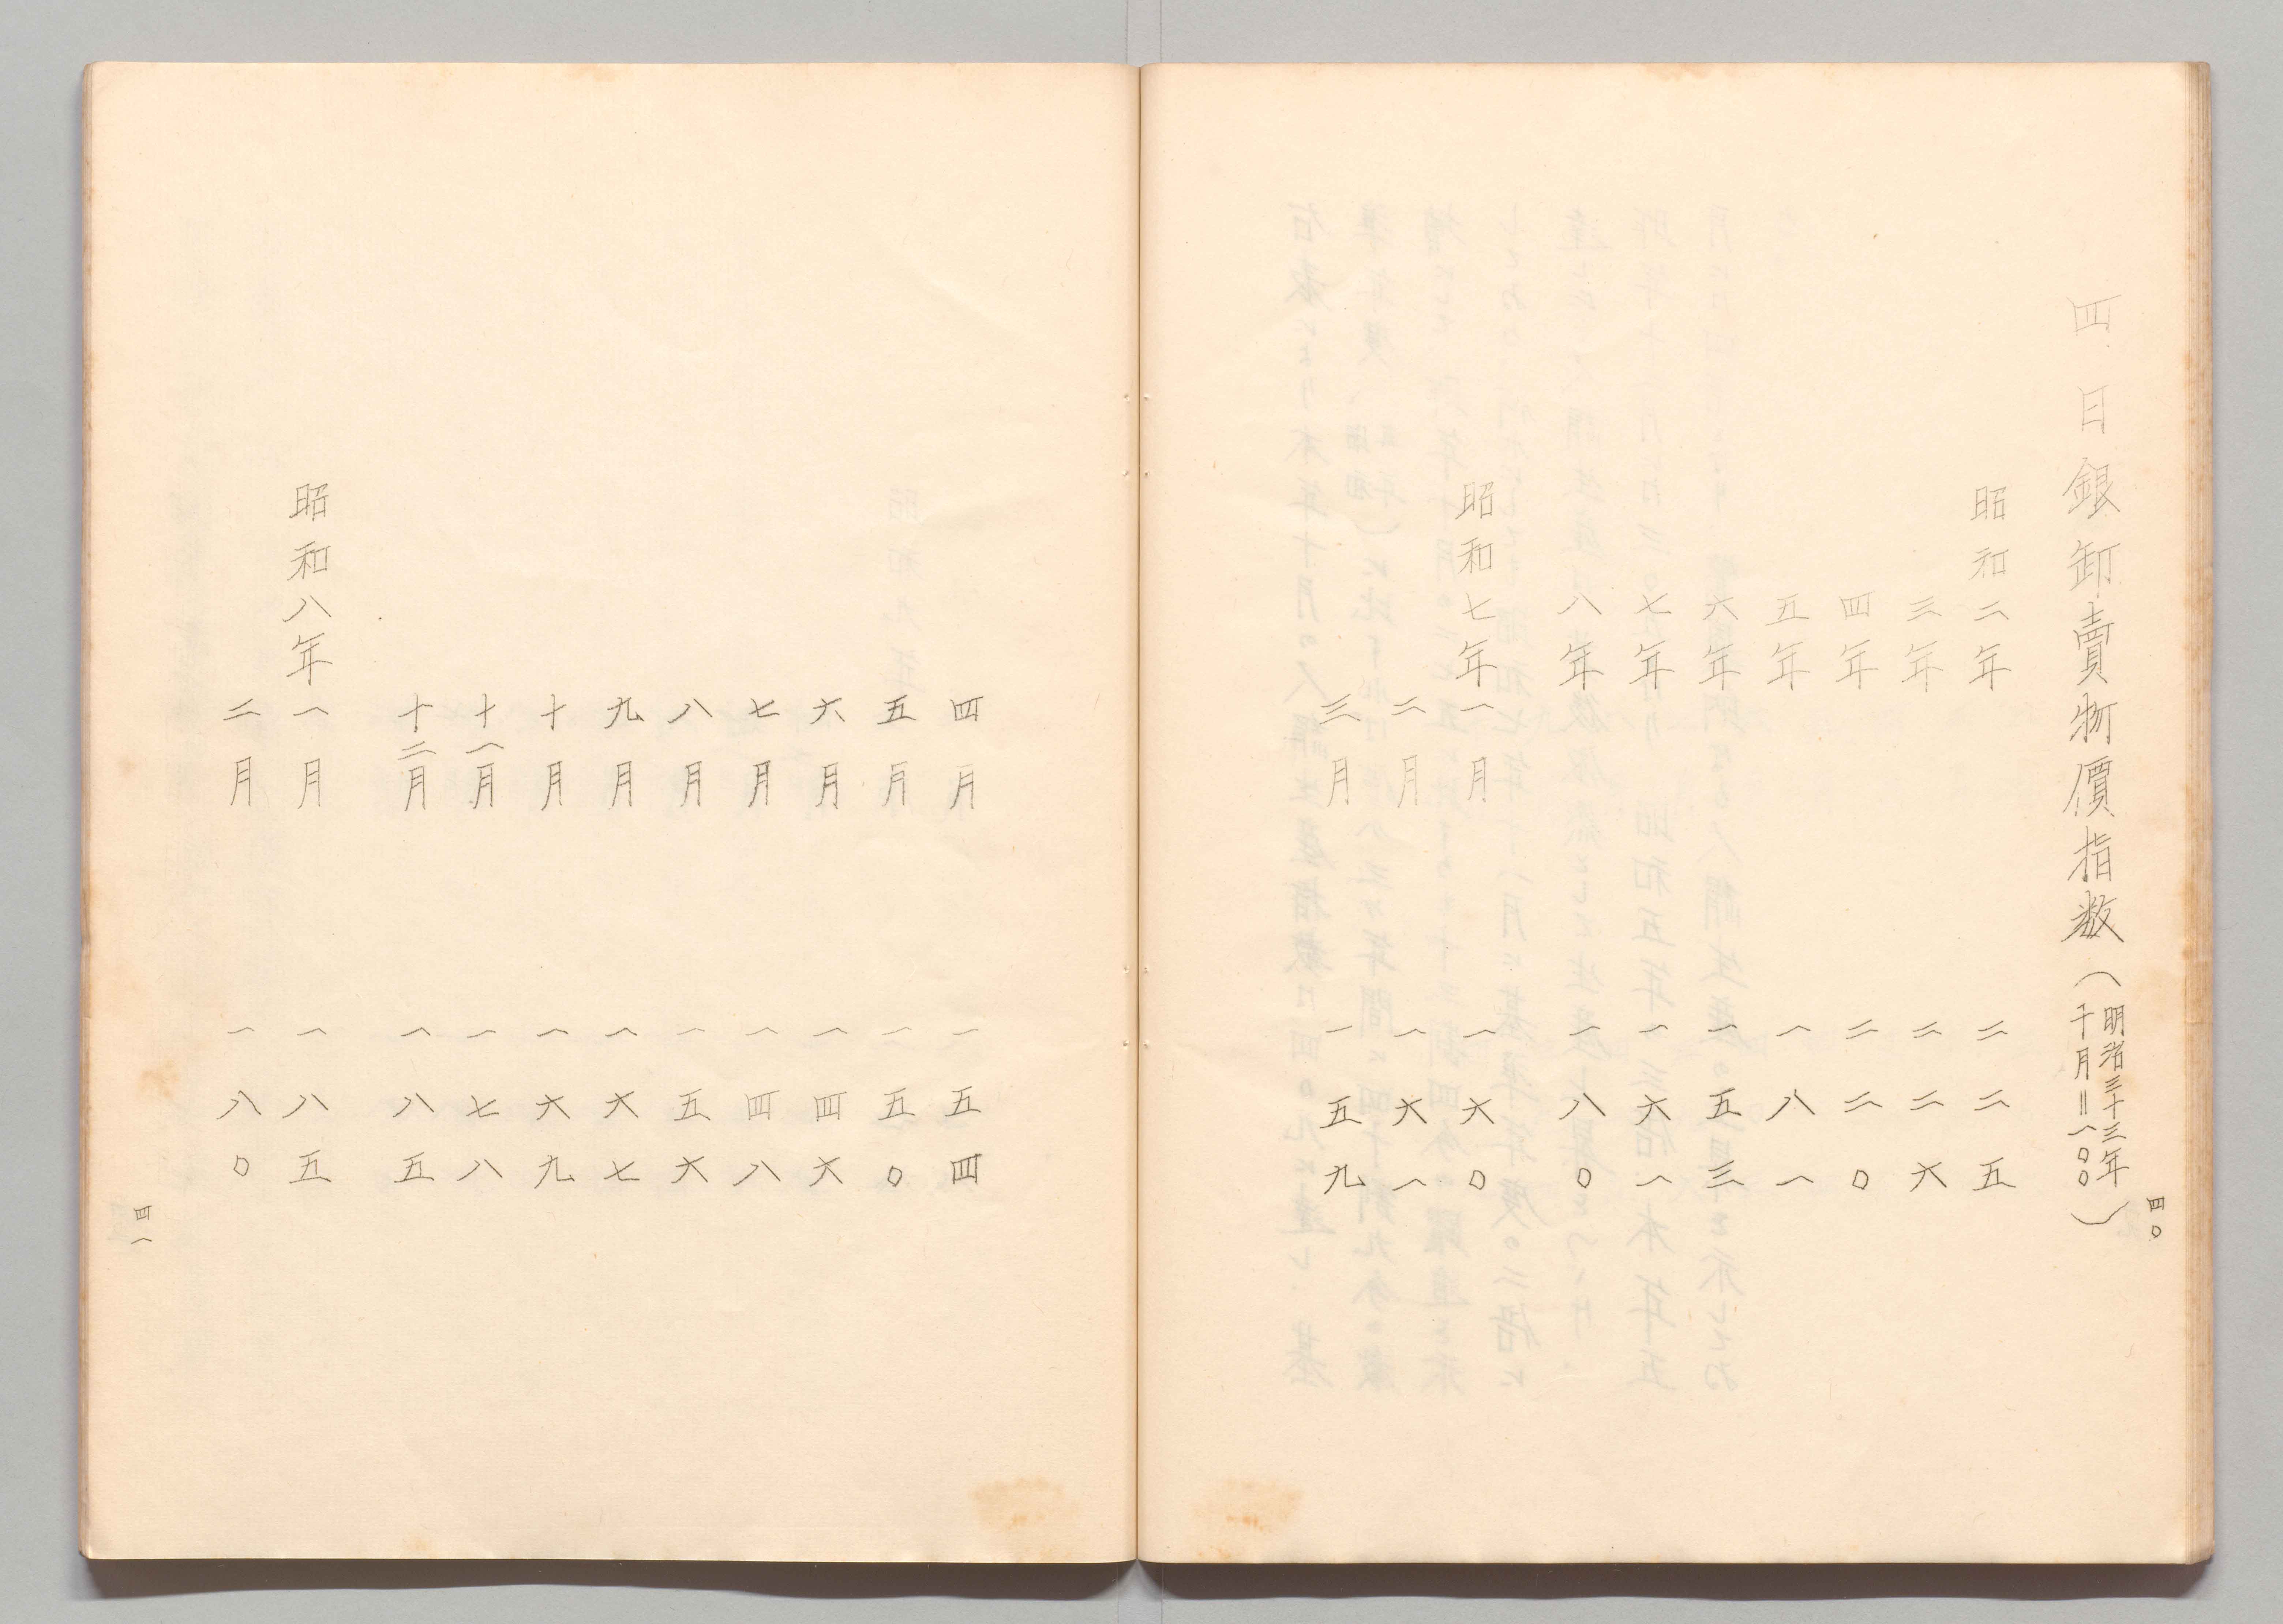 四、日銀卸賣物價指数（明治三十三年十月＝一〇〇）
昭和二年 二二五
三年 二二六
四年 二二〇
五年 一八一
六年 一五三
七年 一六一
八年 一八〇
昭和七年一月 一六〇
二月 一六一
三月 一五九
四〇
四月 一五四
五月 一五〇
六月 一四六
七月 一四八
八月 一五六
九月 一六七
十月 一六九
十一月 一七八
十二月 一八五
昭和八年一月 一八五
二月 一八〇
四一